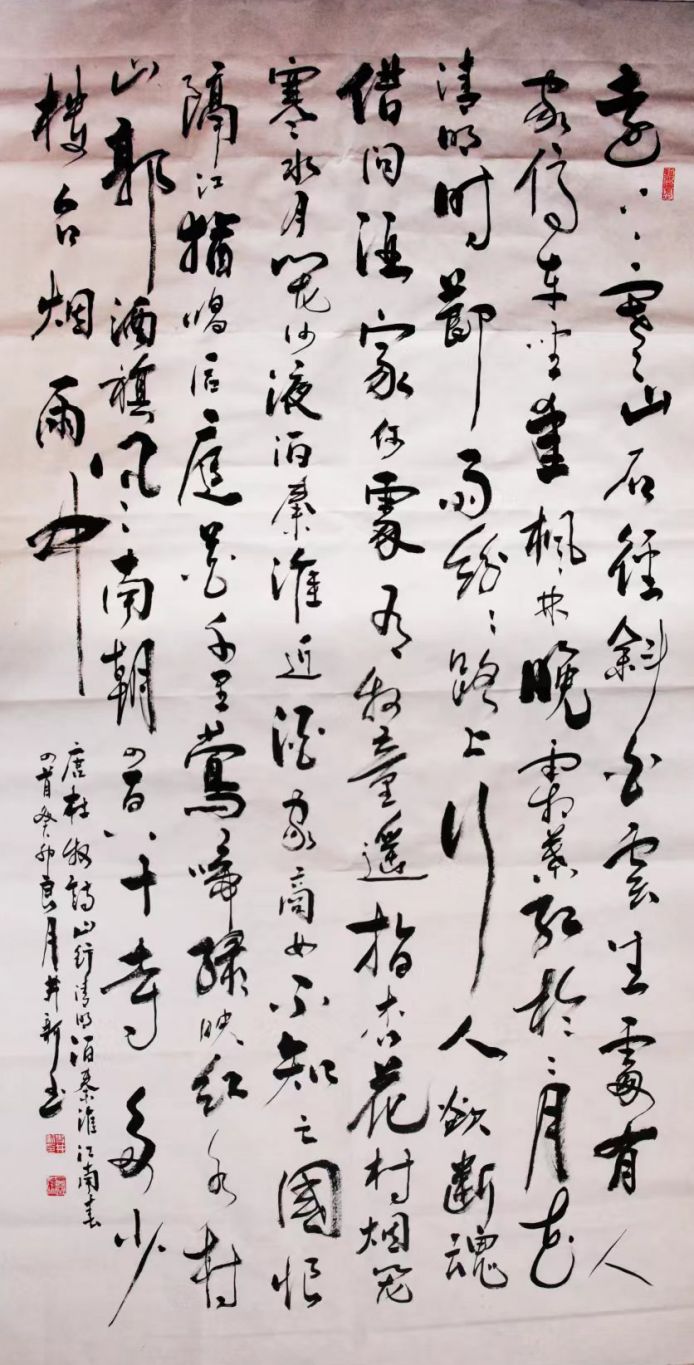 遠上寒山石徑斜白雲生處有人
家停車坐愛楓林晚霜葉紅於二月花
清明时節雨紛〻路上行人欲斷魂
借问酒家何處有牧童遥指杏花村烟笼
寒水月笼沙液泊秦淮近酒家商女不知亡國恨
隔江猶唱后庭花千里鶯啼绿映红水村
山郭酒旗风南朝四百八十寺多少
樓台烟雨中
唐杜牧詩山行清明泊秦淮江南春
四首癸卯良月井新书